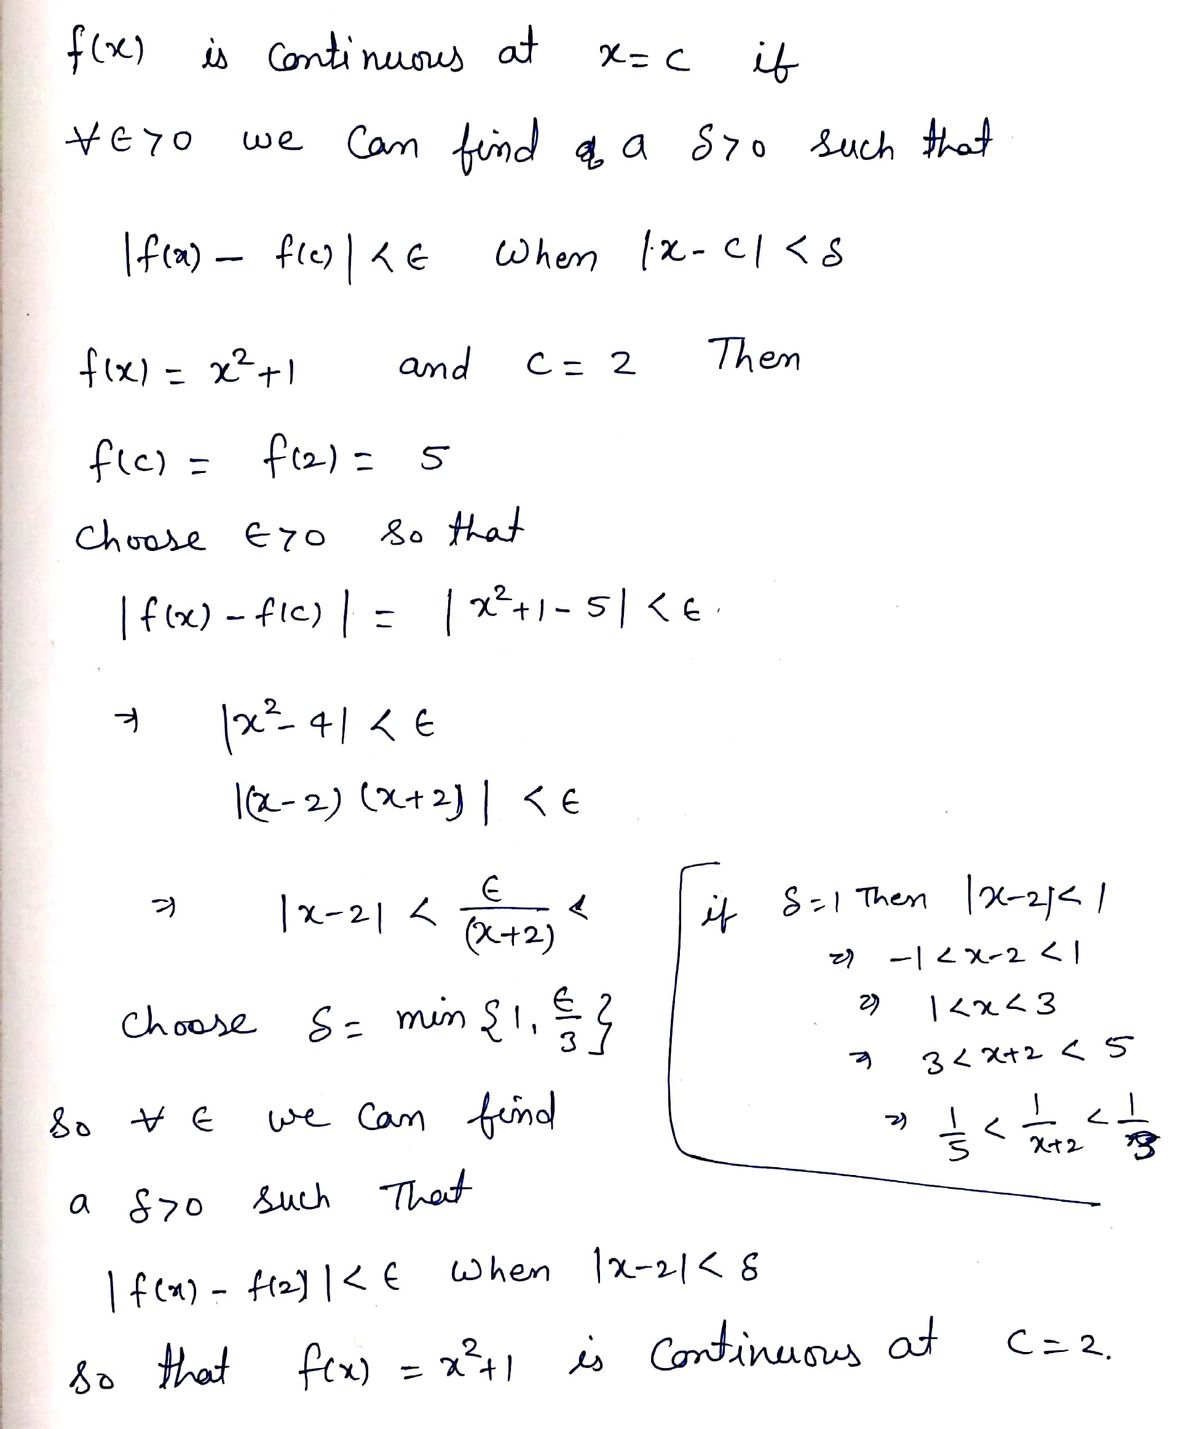 f(x) is continuous at x = c if
∀ ϵ > 0 we can find a δ > 0 such that
|f(x) − f(c)| < ϵ when |x − c| < δ
f(x) = x² + 1 and c = 2 Then
f(c) = f(2) = 5
choose ϵ > 0 so that
|f(x) − f(c)| = |x² + 1 − 5| < ϵ.
⇒ |x² − 4| < ϵ
|(x − 2) (x + 2)| < ϵ
⇒ |x − 2| < ϵ/(x+2) <
choose δ = min {1, ϵ/3}
if δ = 1 Then |x − 2| < 1
⇒ −1 < x − 2 < 1
⇒ 1 < x < 3
⇒ 3 < x + 2 < 5
⇒ 1/5 < 1/x+2 < 1/3
So ∀ ϵ we can find
a δ > 0 such that
|f(x) − f(2)| < ϵ when |x − 2| < δ
so that f(x) = x² + 1 is continuous at c = 2.